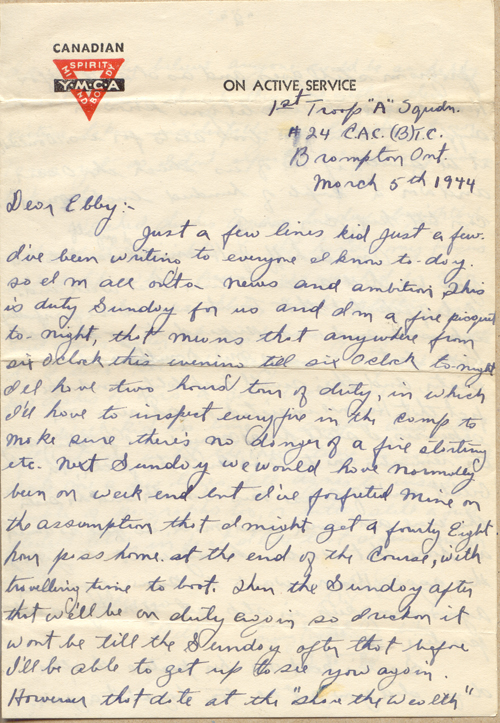 CANADIAN
SPIRIT
MIND BODY
Y·M·C·A
ON ACTIVE SERVICE
1st Troop "A" Squdn.
#24 C.A.C. (B)T.C.
Brampton Ont.
March 5th 1944
Dear Ebby:-
Just a few lines kid just a few.
I've been writing to everyone I know to-day.
so I'm all out of news and ambition. This
is duty Sunday for us and I'm a fire picquet
to-night, that means that anywhere from
six O'clock this evening till six O'clock to-night
I'll have two hours tour of duty, in which
I'll have to inspect every fire in the camp to
make sure there's no danger of a fire starting
etc. Next Sunday we would have normally
been on week end but I've forfeted mine on
the assumption that I might get a fourty Eight
hour pass home. at the end of the Course, with
travelling time to boot. Then the Sunday after
that we'll be on duty again so I reckon it
wont be till the Sunday after that before
I'll be able to get up to see you again.
However that date at the "Share the Wealth"